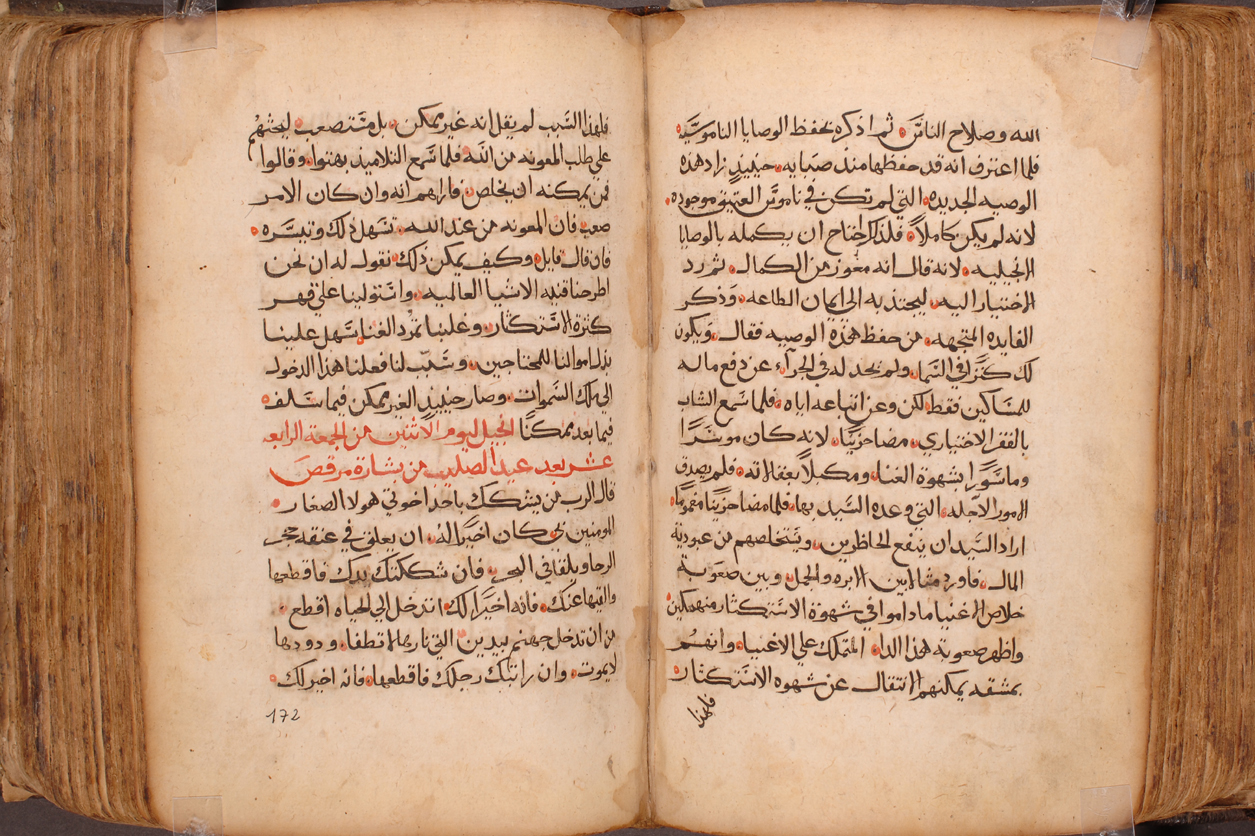 الله وصلاح الناس ثم اذكره بحفظ الوصايا الناموسيه
فلما اعترف انه قد حفظها منذ صبايه حينيذٍ زاد هذه
الوصيه الجديده التي لم تكن في ناموس العتيق موجوده
لانه لم يكن كاملاً فلذلك احتاج ان يكمله بالوصايا
الانجيليه لانه قال انه معوز من الكمال ثم رد
الاختيار اليه ليجتذبه الى ايمان الطاعه وذكر
الفايده المتجهه من حفظ هذه الوصيه فقال ويكون
لك كنز في السما ولم يحد له في الجزآء عن دفع ماله
للمساكين فقط لكن وعن اتباعه اياه فلما سمع الشاب
بالفقر الاختياري مضا حزينًا لانه كان موسرًا
وماسورًا بشهوة الغنا ومكبلاً بعقالاته فلم يصدق
الامور الاجله التي وعده السيد بها فلما مضا حزينًا مغمومًا
اراد السيد ان ينفع الحاظرين ويستخلصهم من عبودية
المال فاورد مثل ابين الابره والجمل وبين صعوبة
خلاص الاغنيا ما داموا في شهوة الاستكثار منهمكين
واظهر صعوبة هذا الدا المتملك علي الاغنيا وانهم
بمشقه يمكنهم الانتقال عن شهوه الاستكثار
فلهذا
فلهذا السبب لم يقل انه غير ممكن بل مستصعب ليحثهم
علي طلب المعونه من الله فلما سمع التلاميذ بهتوا وقالوا
فمن يمكنه ان يخلص فاراهم انه وان كان الامر
صعب فان المعونه من عند الله تسهل ذلك وتيسره
فان قال قايل وكيف يمكن ذلك نقول له ان نحن
اطرحنا قنيه الاشيا العالميه واستولينا علي قهر
كثرة الاستكثار وغلبنا تمرد الغنا سهل علينا
بذل اموالنا للمحتاجين وسبب لنا فعلنا هذا الدخول
الي ملك السموات وصار حينيذٍ الغير ممكن فيما سلف
فيما بعد ممكنًا انجيل ليوم الاثنين من الجمعة الرابعه
عشر بعد عيد الصليب من بشارة مرقص
قال الرب من يشكك باحد اخوتي هولا الصغار
المومنين بي كان اخيرًا له ان يعلق في عنقه حجر
الرحا ويلقا في البحر فان شككتك يدك فاقطعها
والقيها عنك فانه اخيرًا لك ان تدخل الي الحياه اقطع
من ان تدخل جهنم بيدين التي نارها لا تطفا ودودها
لا يموت وان رابتك رجلك فاقطعها فانه اخير لك
172